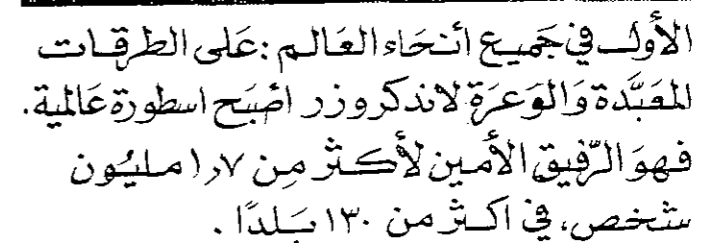 الأول في جَميع أنحَاء العَالم : عَلى الطرقات
المعَبَّدة وَالوَعرَة لاندكروزر اصْبَح اسطورة عَالمية.
فهوَ الرّفيق الأمين لأكثر مِن ١٫٧ مليُون
شخص، في اكثر من ١٣٠ بَلدًا .